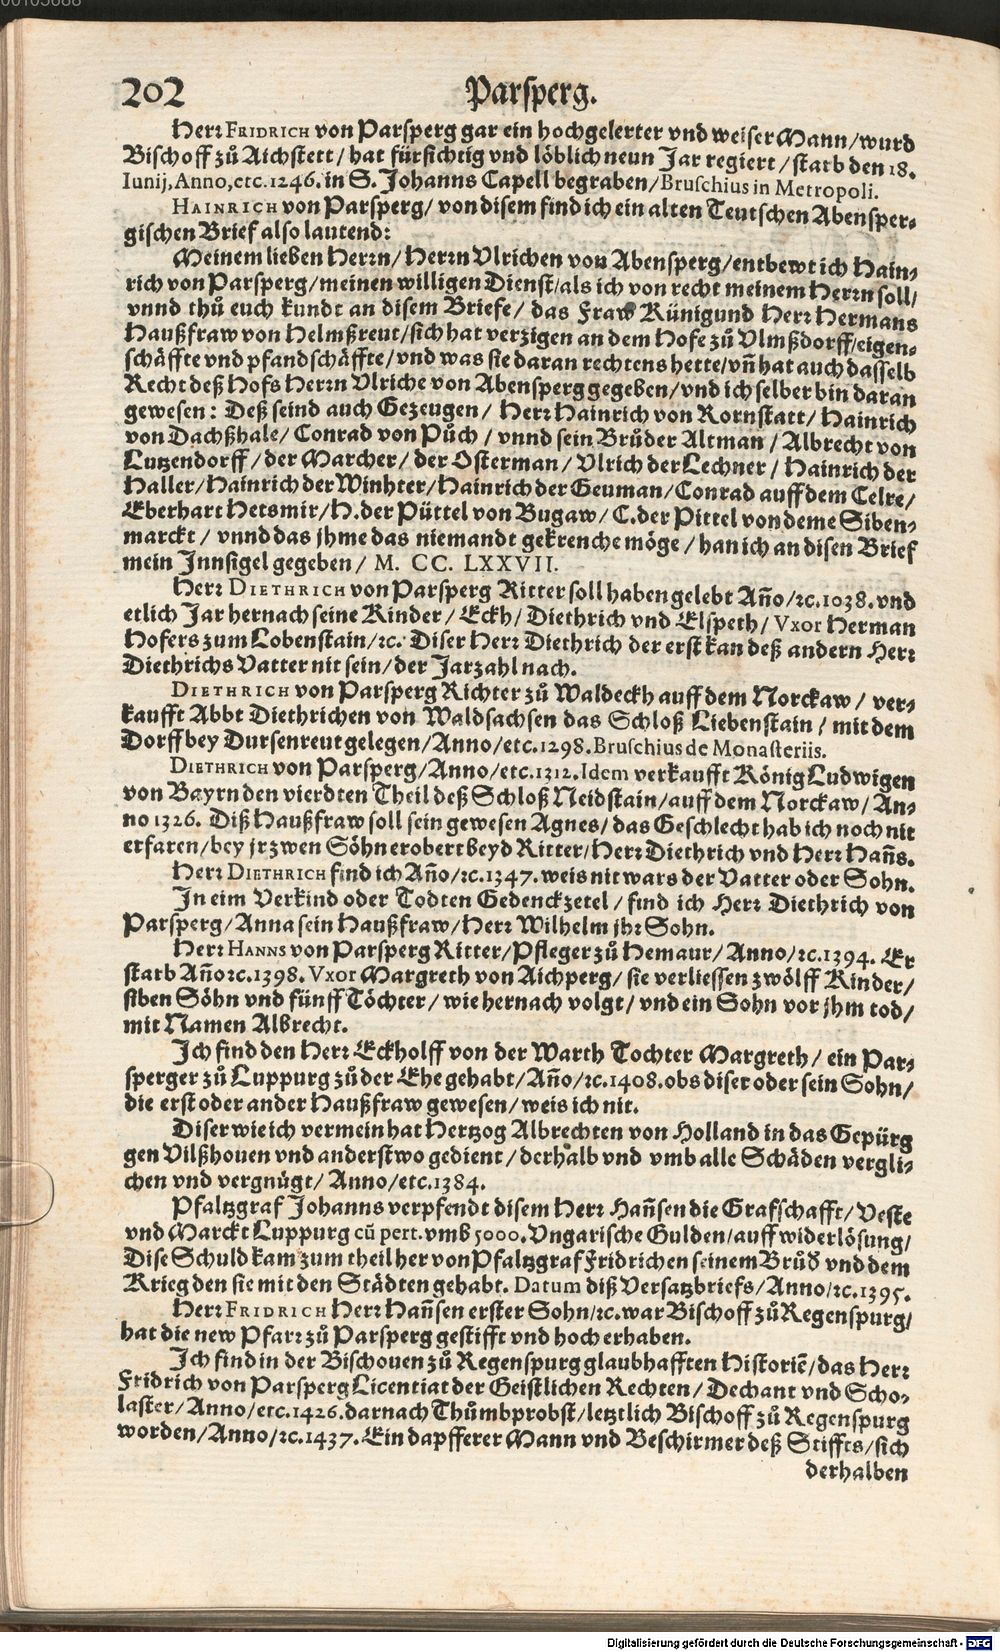 202 Parsperg.
Herr FRIDRICH von Parsperg gar ein hochgelerter vnd weiser Mann/wurd
Bischoff zů Aichstett/ hat fürsichtig vnd löblich neun Jar regiert/ starb den 18.
Iunij, Anno, etc. 1246. in S. Johanns Capell begraben/ Bruschius in Metropoli.
HAINRICH von Parsperg/ von disem find ich ein alten Teutschen Abensper-
gischen Brief also lautend:
Meinem lieben Herrn/ Herrn Vlrichen von Abensperg/entbewt ich Hain-
rich von Parsperg/meinen willigen Dienst/als ich von recht meinem Herrn soll/
vnnd thů euch kundt an disem Briefe/ das Fraw Künigund Herr Hermans
Haußfraw von Helmßreut/sich hat verzigen an dem Hofe zů Vlmßdorff/eigen-
schäffte vnd pfandschäffte/vnd was sie daran rechtens hette/vñ hat auch dasselb
Recht deß Hofs Herrn Vlriche von Abensperg gegeben/vnd ich selber bin daran
gewesen: Deß seind auch Gezeugen/ Herr Hainrich von Rornstatt/ Hainrich
von Dachßhale/ Conrad von Půch / vnnd sein Brůder Altman / Albrecht von
Lutzendorff/ der Marcher/ der Osterman / Vlrich der Lechner / Hainrich der
Haller/ Hainrich der Winhter/Hainrich der Geuman/Conrad auff dem Celre/
Eberhart Hetsmir/ H. der Püttel von Bugaw/ C. der Pittel von deme Siben-
marckt / vnnd das jhme das niemandt gekrenche möge / han ich an disen Brief
mein Innsigel gegeben / M. CC. LXXVII.
Herr DIETHRICH von Parsperg Ritter soll haben gelebt Año/ꝛc. 1038. vnd
etlich Jar hernach seine Kinder / Eckh/ Diethrich vnd Elspeth/ Vxor Herman
Hofers zum Lobenstain/ꝛc. Diser Herr Diethrich der erst kan deß andern Herr
Diethrichs Vatter nit sein/ der Jarzahl nach.
DIETHRICH von Parsperg Richter zů Waldeckh auff dem Norckaw / ver-
kaufft Abbt Diethrichen von Waldsachsen das Schloß Liebenstain / mit dem
Dorff bey Dursenreut gelegen/Anno/etc. 1298. Bruschius de Monasteriis.
DIETHRICH von Parsperg/Anno/etc. 1312. Idem verkaufft König Ludwigen
von Bayrn den vierdten Theil deß Schloß Neidstain/auff dem Norckaw/ An-
no 1326. Diß Haußfraw soll sein gewesen Agnes/ das Geschlecht hab ich noch nit
erfaren/bey jr zwen Söhn erobert beyd Ritter/Herr Diethrich vnd Herr Hañs.
Herr DIETHRICH find ich Año/ꝛc. 1347. weis nit wars der Vatter oder Sohn.
In eim Verkind oder Todten Gedenckzetel/ find ich Herr Diethrich von
Parsperg/Anna sein Haußfraw/Herr Wilhelm jhr Sohn.
Herr HANNS von Parsperg Ritter/Pfleger zů Hemaur/Anno/ꝛc. 1394. Er
starb Año ꝛc. 1398. Vxor Margreth von Aichperg/ sie verliessen zwölff Kinder/
siben Söhn vnd fünff Töchter/ wie hernach volgt/ vnd ein Sohn vor jhm tod/
mit Namen Albrecht.
Ich find den Herr Eckholff von der Warth Tochter Margreth/ ein Par-
sperger zů Luppurg zů der Ehe gehabt/Año/ꝛc. 1408. obs diser oder sein Sohn/
die erst oder ander Haußfraw gewesen/weis ich nit.
Diser wie ich vermein hat Hertzog Albrechten von Holland in das Gepürg
gen Vilßhouen vnd anderstwo gedient/ derhalb vnd vmb alle Schäden vergli-
chen vnd vergnügt/ Anno/etc. 1384.
Pfaltzgraf Johanns verpfendt disem Herr Hañsen die Grafschafft/Veste
vnd Marckt Luppurg cũ pert. vmb 5000. Vngarische Gulden/auff widerlösung/
Dise Schuld kam zum theil her von Pfaltzgraf Fridrichen seinem Brůd̃ vnd dem
Krieg den sie mit den Städten gehabt. Datum diß Versatzbriefs/Anno/ꝛc. 1395.
Herr FRIDRICH Herr Hañsen erster Sohn/ꝛc. war Bischoff zů Regenspurg/
hat die new Pfarr zů Parsperg gestifft vnd hoch erhaben.
Ich find in der Bischouen zů Regenspurg glaubhafften Historiẽ/das Herr
Fridrich von Parsperg Licentiat der Geistlichen Rechten/ Dechant vnd Scho-
laster/Anno/etc. 1426. darnach Thůmbprobst/letztlich Bischoff zů Regenspurg
worden/Anno/ꝛc. 1437. Ein dapfferer Mann vnd Beschirmer deß Stiffts/sich
derhalben
Digitalisierung gefördert durch die Deutsche Forschungsgemeinschaft - DFG